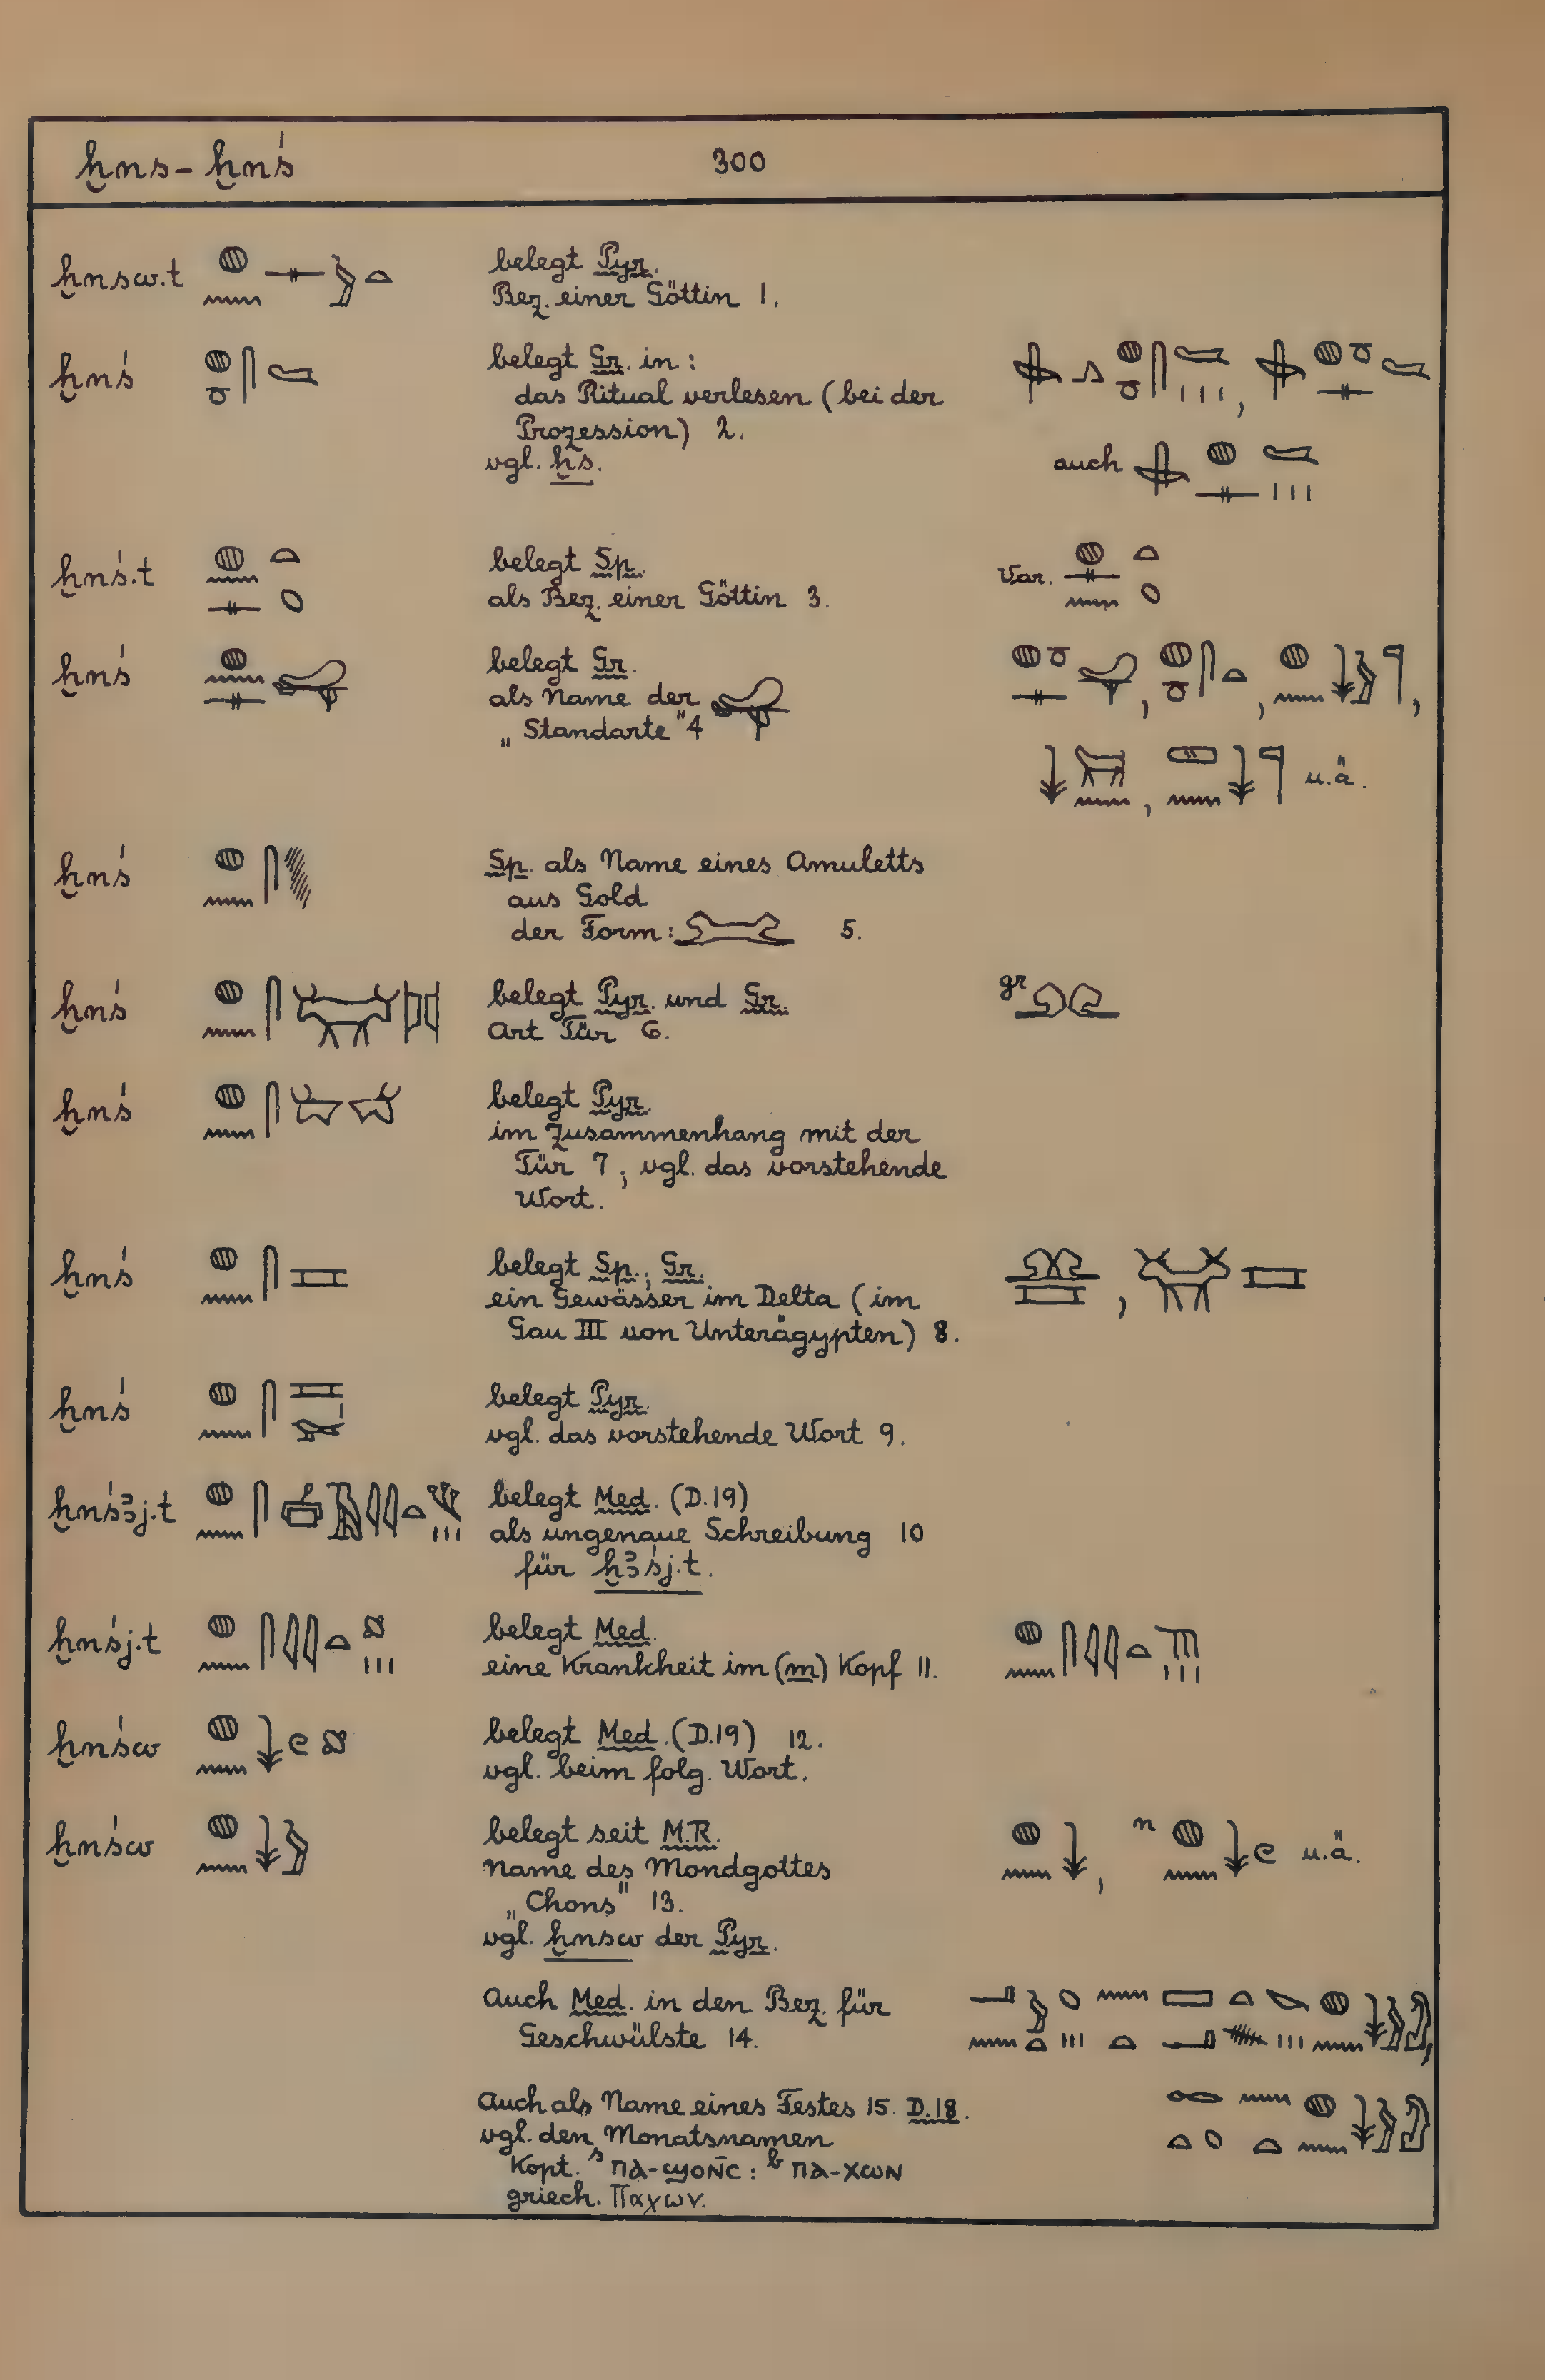 ḫns - ḫnś 300
ḫnsw.t belegt Pyr.
Bez. einer Göttin 1.
ḫnś belegt Gr. in:
das Ritual verlesen (bei der
Prozession) 2.
vgl. ḫś.
auch
ḫnś.t belegt Sp.
als Bez. einer Göttin 3.
Var.
ḫnś belegt Gr.
als Name der
„Standarte" 4
u.ä.
ḫnś Sp. als Name eines Amuletts
aus Gold
der Form: 5.
ḫnś belegt Pyr. und Gr. gr
Art Tür 6.
ḫnś belegt Pyr.
im Zusammenhang mit der
Tür 7; vgl. das vorstehende
Wort.
ḫnś belegt Sp.; Gr.
ein Gewässer im Delta (im
Gau III von Unterägypten) 8.
ḫnś belegt Pyr.
vgl. das vorstehende Wort 9.
ḫnśꜣj.t belegt Med. (D.19)
als ungenaue Schreibung 10
für ḫꜣśj.t.
ḫnśj.t belegt Med.
eine Krankheit im (m) Kopf 11.
ḫnśw belegt Med. (D.19) 12.
vgl. beim folg. Wort.
ḫnśw belegt seit M.R. n u.ä.
Name des Mondgottes
„Chons" 13.
vgl. ḫnsw der Pyr.
Auch Med. in den Bez. für
Geschwülste 14.
Auch als Name eines Festes 15. D.18.
vgl. den Monatsnamen
Kopt. s ⲡⲁ-ϣⲟⲛ̄ⲥ : b ⲡⲁ-ⲭⲱⲛ
griech. Παχων.